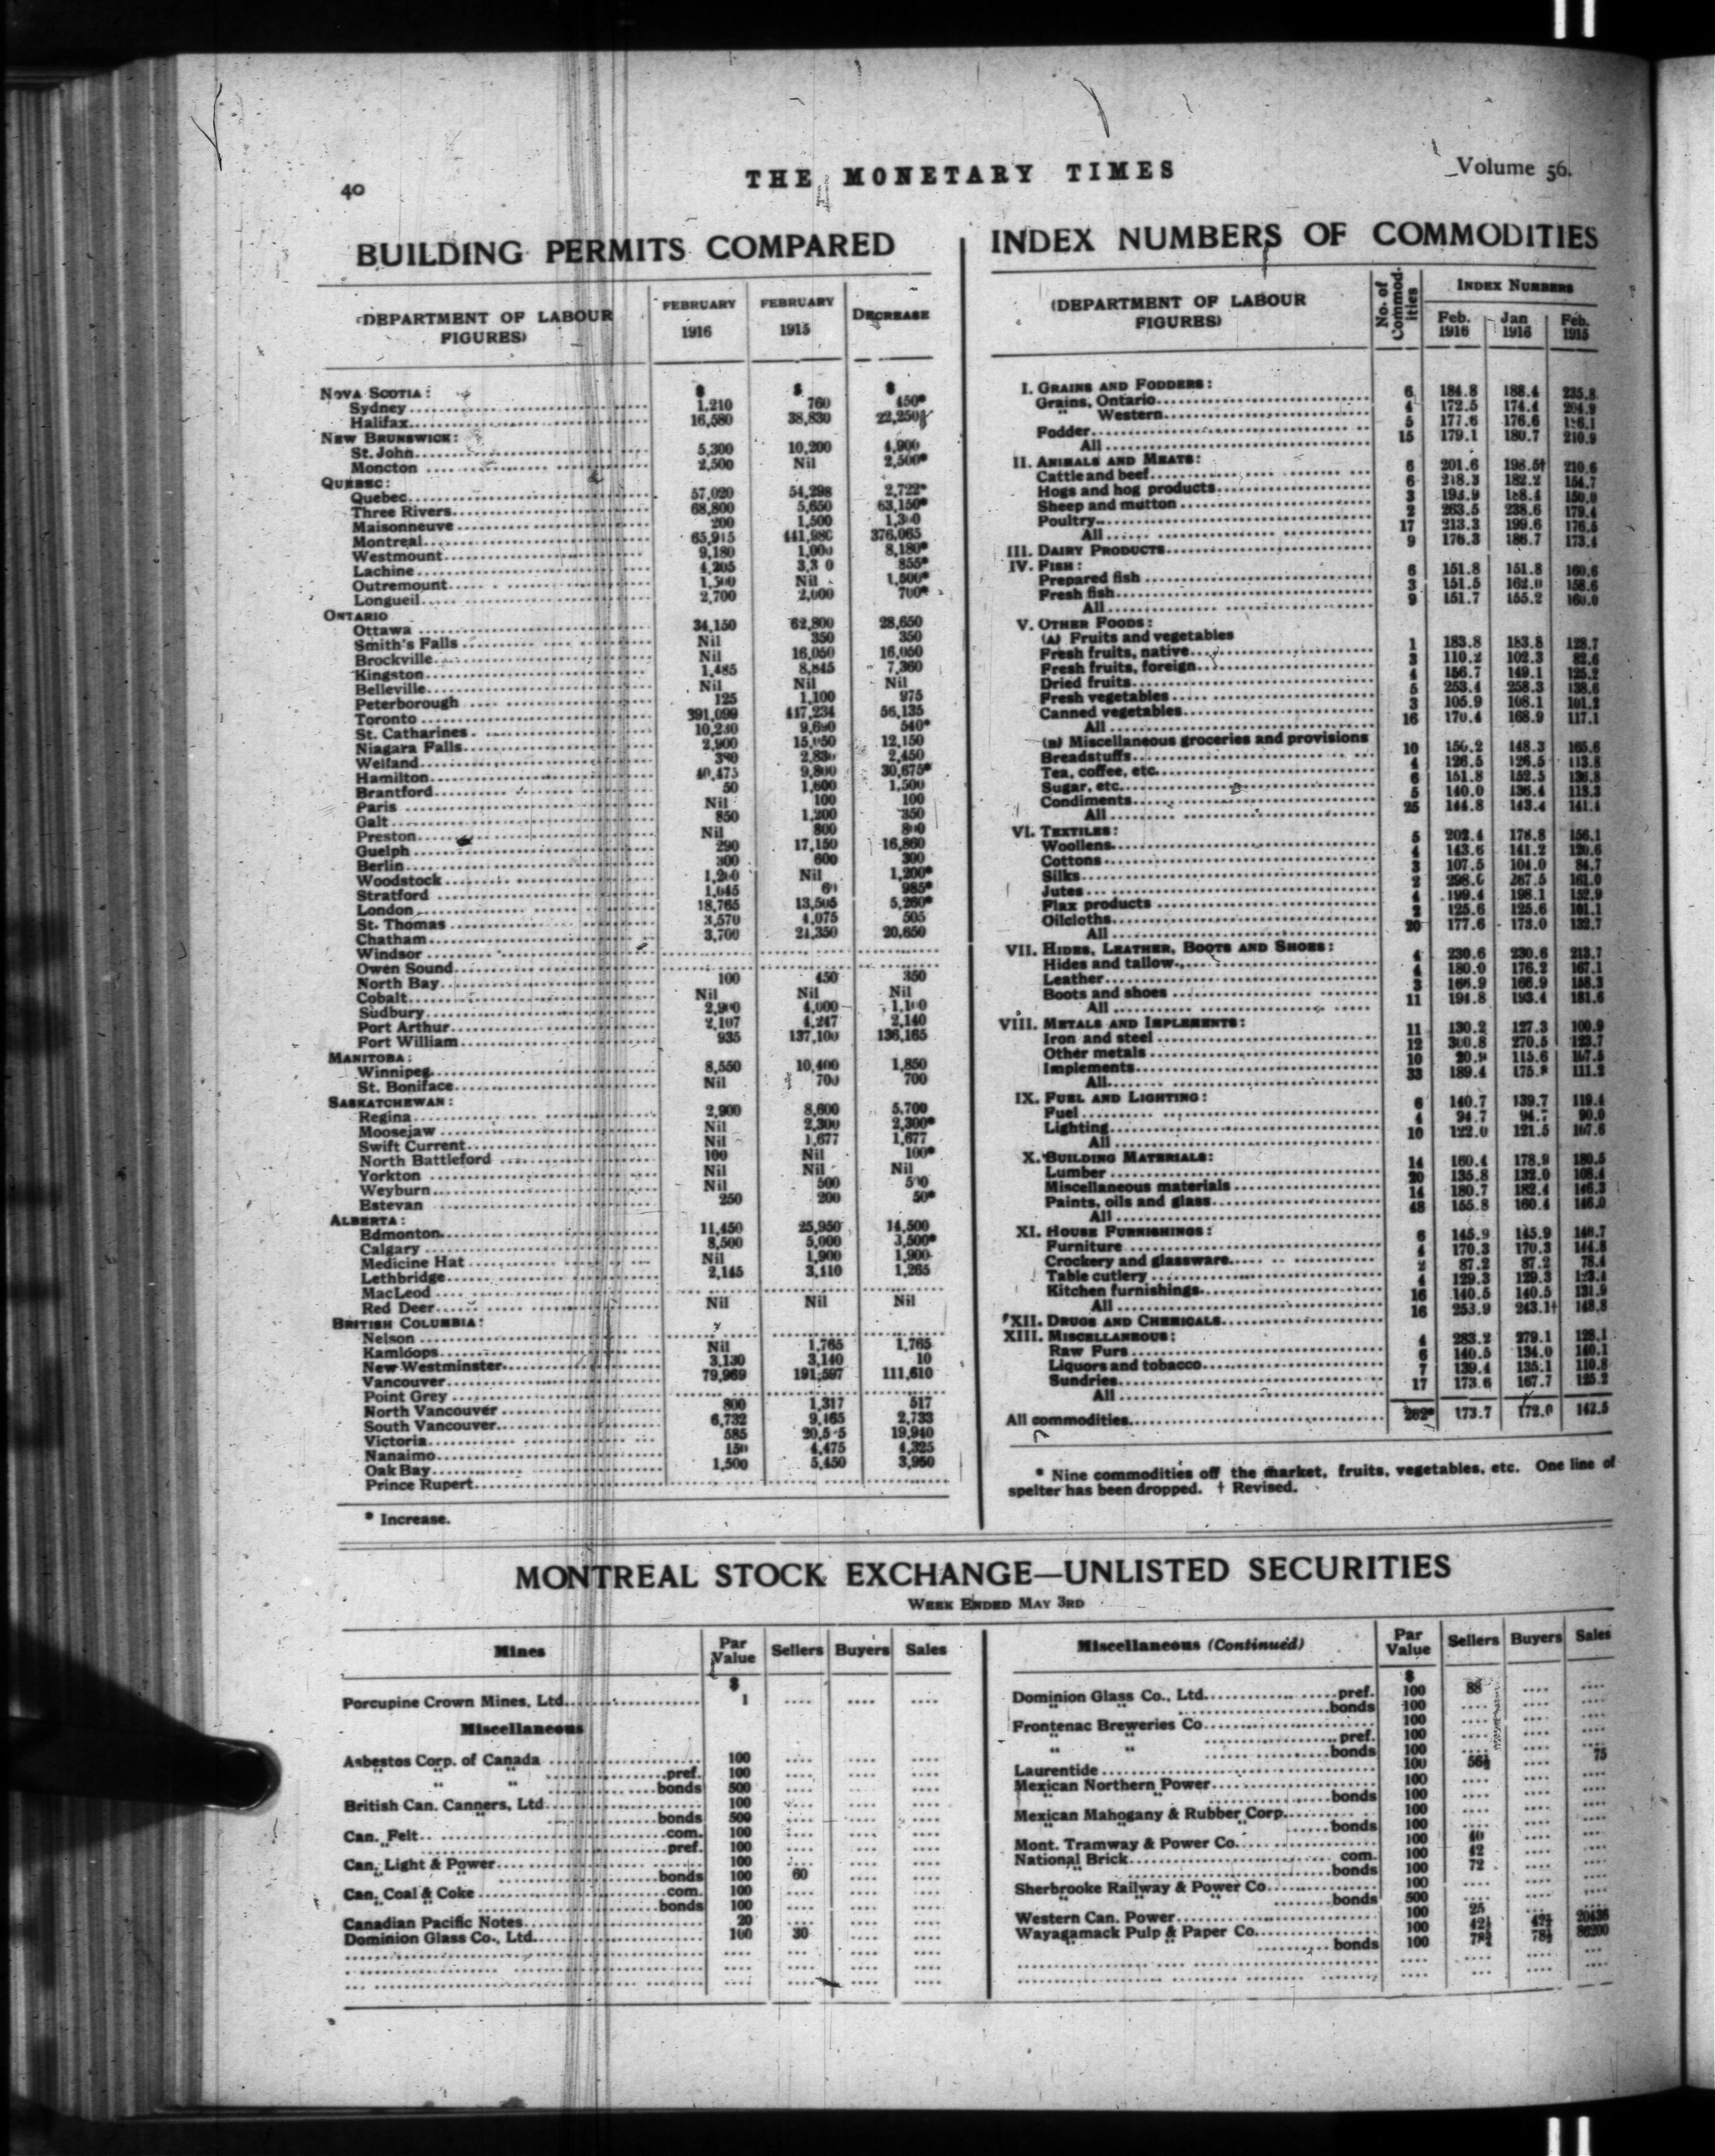 40
THE MONETARY TIMES
Volume 56.
BUILDING PERMITS COMPARED
(DEPARTMENT OF LABOUR FIGURES) FEBRUARY 1916 FEBRUARY 1915 DECREASE
$ $ $
NOVA SCOTIA:
Sydney 1,210 760 450*
Halifax 16,580 38,830 22,250
NEW BRUNSWICK:
St. John 5,300 10,200 4,900
Moncton 2,500 Nil 2,500*
QUEBEC:
Quebec 57,020 54,298 2,722*
Three Rivers 68,800 5,650 63,150*
Maisonneuve 200 1,500
Montreal 65,915 441,980 376,065
Westmount 9,180 1,000 8,180*
Lachine 4,205 855*
Outremount Nil 1,500*
Longueil 2,700 2,000 700*
ONTARIO
Ottawa 34,150 62,800 28,650
Smith's Falls Nil 350 350
Brockville Nil 16,050 16,050
Kingston 1,485 8,845 7,360
Belleville Nil Nil Nil
Peterborough 125 1,100 975
Toronto 391,099 417,234 56,135
St. Catharines 10,230 540*
Niagara Falls 2,900 15,050 12,150
Welland 2,450
Hamilton 40,475 9,800 30,675*
Brantford 50 1,600 1,500
Paris Nil 100 100
Galt 850 1,200 350
Preston Nil 800 800
Guelph 290 17,150 16,860
Berlin 300 600 300
Woodstock 1,200 Nil 1,200*
Stratford 1,045 985*
London 18,765 13,505 5,260*
St. Thomas 3,570 4,075 505
Chatham 3,700 21,350 20,650
Windsor
Owen Sound
North Bay 100 450 350
Cobalt Nil Nil Nil
Sudbury 2,900 4,000
Port Arthur 2,107 4,247 2,140
Fort William 935 137,100 136,165
MANITOBA:
Winnipeg 8,550 10,400 1,850
St. Boniface Nil 700 700
SASKATCHEWAN:
Regina 2,900 8,600 5,700
Moosejaw Nil 2,300 2,300*
Swift Current Nil 1,677 1,677
North Battleford 100 Nil 100*
Yorkton Nil Nil Nil
Weyburn Nil 500 500
Estevan 250 200 50*
ALBERTA:
Edmonton 11,450 25,950 14,500
Calgary 8,500 5,000 3,500*
Medicine Hat Nil 1,900 1,900
Lethbridge 2,145 3,410 1,265
MacLeod
Red Deer Nil Nil Nil
BRITISH COLUMBIA:
Nelson
Kamloops Nil 1,765 1,765
New Westminster 3,130 3,140 10
Vancouver 79,969 191,597 111,610
Point Grey
North Vancouver 800 1,317 517
South Vancouver 6,732 9,465 2,733
Victoria 585 19,940
Nanaimo 150 4,475 4,325
Oak Bay 1,500 5,450 3,950
Prince Rupert
* Increase.
INDEX NUMBERS OF COMMODITIES
(DEPARTMENT OF LABOUR FIGURES) No. of Commodities INDEX NUMBERS
Feb. 1916 Jan 1916 Feb. 1915
I. GRAINS AND FODDERS:
Grains, Ontario 6 184.8 188.4 235.8
" Western 4 172.5 174.4 204.9
Fodder 5 177.6 176.6
All 15 179.1 180.7 210.9
II. ANIMALS AND MEATS:
Cattle and beef 6 201.6 198.5† 210.6
Hogs and hog products 6 218.3 182.2 154.7
Sheep and mutton 3 150.0
Poultry 2 263.5 238.6 179.4
All 17 213.3 199.6 176.5
III. DAIRY PRODUCTS 9 176.3 186.7 173.4
IV. FISH:
Prepared fish 6 151.8 151.8 160.6
Fresh fish 3 151.5 162.0 158.6
All 9 151.7 155.2 160.0
V. OTHER FOODS:
(A) Fruits and vegetables
Fresh fruits, native 1 183.8 183.8 128.7
Fresh fruits, foreign 3 110.2 102.3 82.6
Dried fruits 4 156.7 149.1 125.2
Fresh vegetables 5 253.4 258.3 138.6
Canned vegetables 3 105.9 108.1 101.2
All 16 170.4 168.9 117.1
(B) Miscellaneous groceries and provisions
Breadstuffs 10 148.3 165.6
Tea, coffee, etc. 4 126.5 126.5 113.8
Sugar, etc. 6 151.8 152.5 136.8
Condiments 5 140.0 136.4 113.3
All 25 144.8 143.4 141.4
VI. TEXTILES:
Woollens 5 202.4 178.8 156.1
Cottons 4 143.6 141.2 120.6
Silks 3 107.5 104.0 84.7
Jutes 2 267.5 161.0
Flax products 4 199.4 198.1 152.9
Oilcloths 2 125.6 125.6 101.1
All 20 177.6 173.0 132.7
VII. HIDES, LEATHER, BOOTS AND SHOES:
Hides and tallow 4 230.6 230.6 213.7
Leather 4 180.0 176.2 167.1
Boots and shoes 3 166.9 166.9 158.3
All 11 194.8 193.4 181.6
VIII. METALS AND IMPLEMENTS:
Iron and steel 11 130.2 127.3 100.9
Other metals 12 300.8 270.5 123.7
Implements 10 115.6
All 33 189.4 111.2
IX. FUEL AND LIGHTING:
Fuel 6 140.7 139.7 119.4
Lighting 4 94.7 90.0
All 10 122.0 121.5 107.6
X. BUILDING MATERIALS:
Lumber 14 160.4 178.9 180.5
Miscellaneous materials 20 135.8 132.0 108.4
Paints, oils and glass 14 180.7 182.4 146.3
All 48 155.8 160.4 146.0
XI. HOUSE FURNISHINGS:
Furniture 6 145.9 145.9 146.7
Crockery and glassware 4 170.3 170.3 144.8
Table cutlery 2 87.2 87.2 78.4
Kitchen furnishings 4 129.3 129.3 123.4
All 16 140.5 140.5 131.9
XII. DRUGS AND CHEMICALS 16 253.9 243.1† 148.8
XIII. MISCELLANEOUS:
Raw Furs 4 283.2 279.1 128.1
Liquors and tobacco 6 140.5 134.0 140.1
Sundries 7 139.4 135.1 110.8
All 17 173.6 167.7 125.2
All commodities 262* 173.7 172.0 142.5
* Nine commodities off the market, fruits, vegetables, etc. One line of
spelter has been dropped. † Revised.
MONTREAL STOCK EXCHANGE—UNLISTED SECURITIES
WEEK ENDED MAY 3RD
Mines Par Value Sellers Buyers Sales
$
Porcupine Crown Mines, Ltd. 1
Miscellaneous
Asbestos Corp. of Canada 100
" " pref. 100
" " bonds 500
British Can. Canners, Ltd. 100
" bonds 500
Can. Felt com. 100
" pref. 100
Can. Light & Power 100
" " bonds 100 60
Can. Coal & Coke com. 100
" " bonds 100
Canadian Pacific Notes 20
Dominion Glass Co., Ltd. 100 30
Miscellaneous (Continued) Par Value Sellers Buyers Sales
$
Dominion Glass Co., Ltd. pref. 100 88
" " bonds 100
Frontenac Breweries Co. 100
" " pref. 100
" " bonds 100
Laurentide 100 56½ 75
Mexican Northern Power 100
" " bonds 100
Mexican Mahogany & Rubber Corp. 100
" " bonds 100
Mont. Tramway & Power Co. 100 40
National Brick com. 100 42
" bonds 100 72
Sherbrooke Railway & Power Co. 100
" " bonds 500
Western Can. Power 100 25
Wayagamack Pulp & Paper Co. 100
" " bonds 100